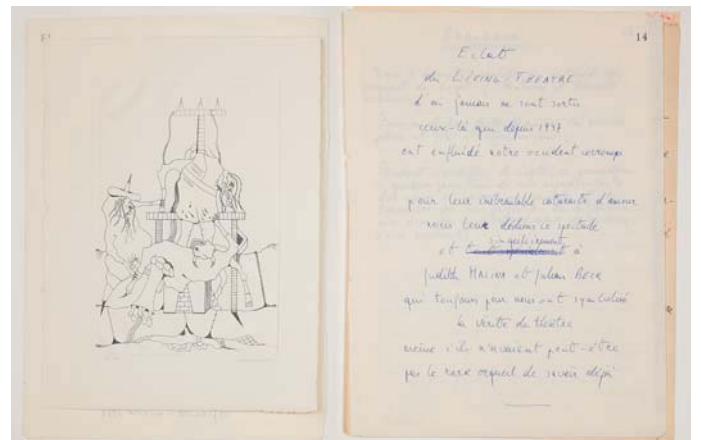 14
Eclat
du LIVING THEATRE
d'où jamais ne sont sortis
ceux-là qui depuis 1947
ont notre occident corrompu
pour leur inébranlable d'amour
nous leur dédions ce spectacle
singulièrement
et à
Judith MALINA et Julian BECK
qui toujours pour nous ont symbolisé
la vérité du théâtre
même s'ils n'avaient peut-être
pas le rare orgueil de savoir déjà